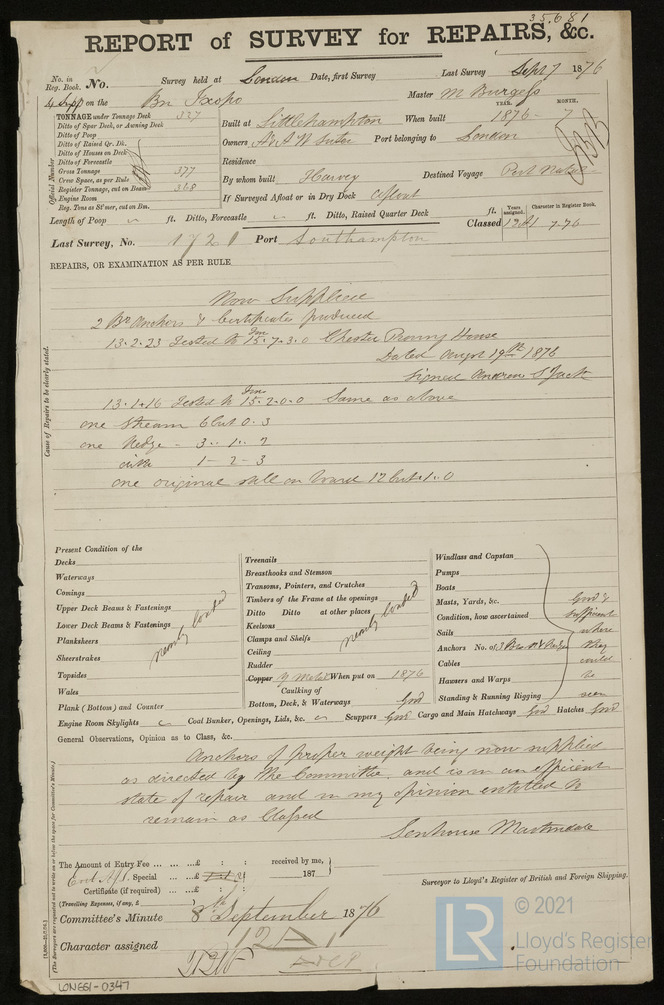 35.681
REPORT of SURVEY for REPAIRS, &c.
No. in Reg. Book. No. Survey held at London Date, first Survey Last Survey Sept 7 1876
4 Supp on the Bn Ixopo Master M Burgess
TONNAGE under Tonnage Deck 337
Ditto of Spar Deck, or Awning Deck
Ditto of Poop
Ditto of Raised Qr. Dk.
Ditto of Houses on Deck
Ditto of Forecastle
Gross Tonnage 377
Crew Space, as per Rule
Register Tonnage, cut on Beam 368
Engine Room
Reg. Tons as St'mer, cut on Bm.
Official Number
YEAR. MONTH.
Built at Littlehampton When built 1876 - 7
Owners Port belonging to London
Residence
By whom built Harvey Destined Voyage Port Natal
If Surveyed Afloat or in Dry Dock Afloat
Length of Poop ft. Ditto, Forecastle ft. Ditto, Raised Quarter Deck ft.
Years assigned. Character in Register Book.
Classed 12A1 7-76
Last Survey, No. 1721 Port Southampton
REPAIRS, OR EXAMINATION AS PER RULE
Cause of Repairs to be clearly stated.
Now Supplied
2 Br Anchors & Certificates produced
13.2.23 Tested to 15.7.3.0 Chester Proving House
Dated Augst 19th 1876
Signed Andrew S Jack
13.1.16 Tested to 15.2.0.0 Same as above
one Stream 6 but 0.3
one Kedge - 3.. 1.. 2
1 - 2 - 3
one original still on board 12 but.1.0
Present Condition of the
Decks
Waterways
Comings
Upper Deck Beams & Fastenings
Lower Deck Beams & Fastenings
Planksheers
Sheerstrakes
Topsides
Wales
Plank (Bottom) and Counter
nearly loaded
Treenails
Breasthooks and Stemson
Transoms, Pointers, and Crutches
Timbers of the Frame at the openings
Ditto Ditto at other places
Keelsons
Clamps and Shelfs
Ceiling
Rudder
nearly loaded
Copper Y Metal When put on 1876
Caulking of
Bottom, Deck, & Waterways Good
Windlass and Capstan
Pumps
Boats
Masts, Yards, &c.
Condition, how ascertained
Sails
Anchors No. of
Cables
Hawsers and Warps
Standing & Running Rigging
Good &
sufficient
where
they
could
be
seen
Engine Room Skylights Coal Bunker, Openings, Lids, &c. Scuppers Good Cargo and Main Hatchways Good Hatches Good
General Observations, Opinion as to Class, &c.
Anchors of proper weight being now supplied
as directed by the Committee, and is in an efficient
state of repair and in my opinion entitled to
remain as Classed
Senhouse Martindale
The Amount of Entry Fee ... ... ...£ : : received by me,
Special ... ...£ 187
Certificate (if required) ... ...£ : :
(Travelling Expenses, if any, £ )
Surveyor to Lloyd's Register of British and Foreign Shipping.
Committee's Minute 8th September 1876
Character assigned 12A1
LON651-0347
LR
© 2021
Lloyd's Register
Foundation